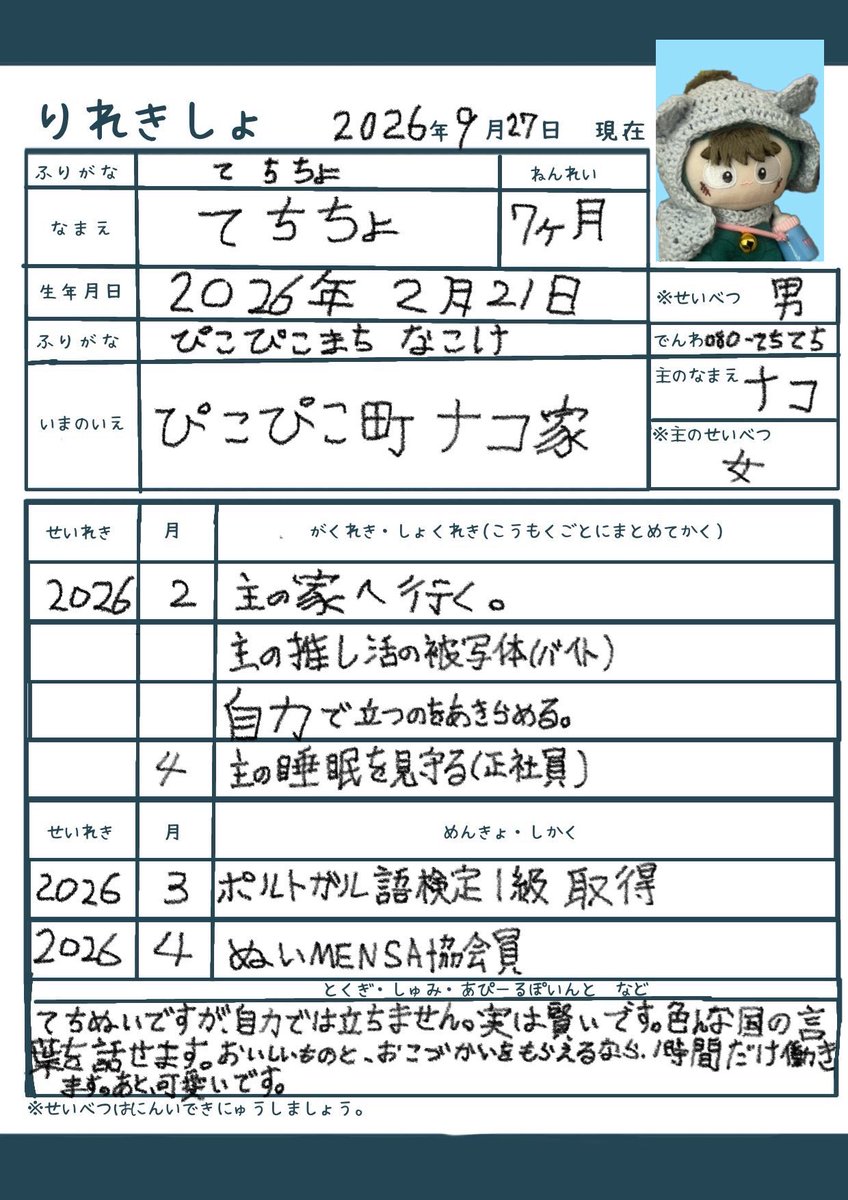 りれきしょ 2026年9月27日 現在
ふりがな てちちよ
ねんれい
なまえ てちちよ
7ヶ月
生年月日 2026年 2月21日
※せいべつ 男
ふりがな ぴこぴこまち なこけ
でんわ080-てちてち
いまのいえ ぴこぴこ町 ナコ家
主のなまえ ナコ
※主のせいべつ
女
せいれき 月 がくれき・しょくれき(こうもくごとにまとめてかく)
2026 2 主の家へ行く。
主の推し活の被写体(バイト)
自力で立つのをあきらめる。
4 主の睡眠を見守る(正社員)
せいれき 月 めんきょ・しかく
2026 3 ポルトガル語検定1級 取得
2026 4 ぬいMENSA協会員
とくぎ・しゅみ・あぴーるぽいんと など
てちぬいですが、自力では立ちません。実は賢いです。色んな国の言
葉を話せます。おいしいものと、おこづかいをもらえるなら、1時間だけ働き
ます。あと、可愛いです。
※せいべつはにんいできにゅうしましょう。